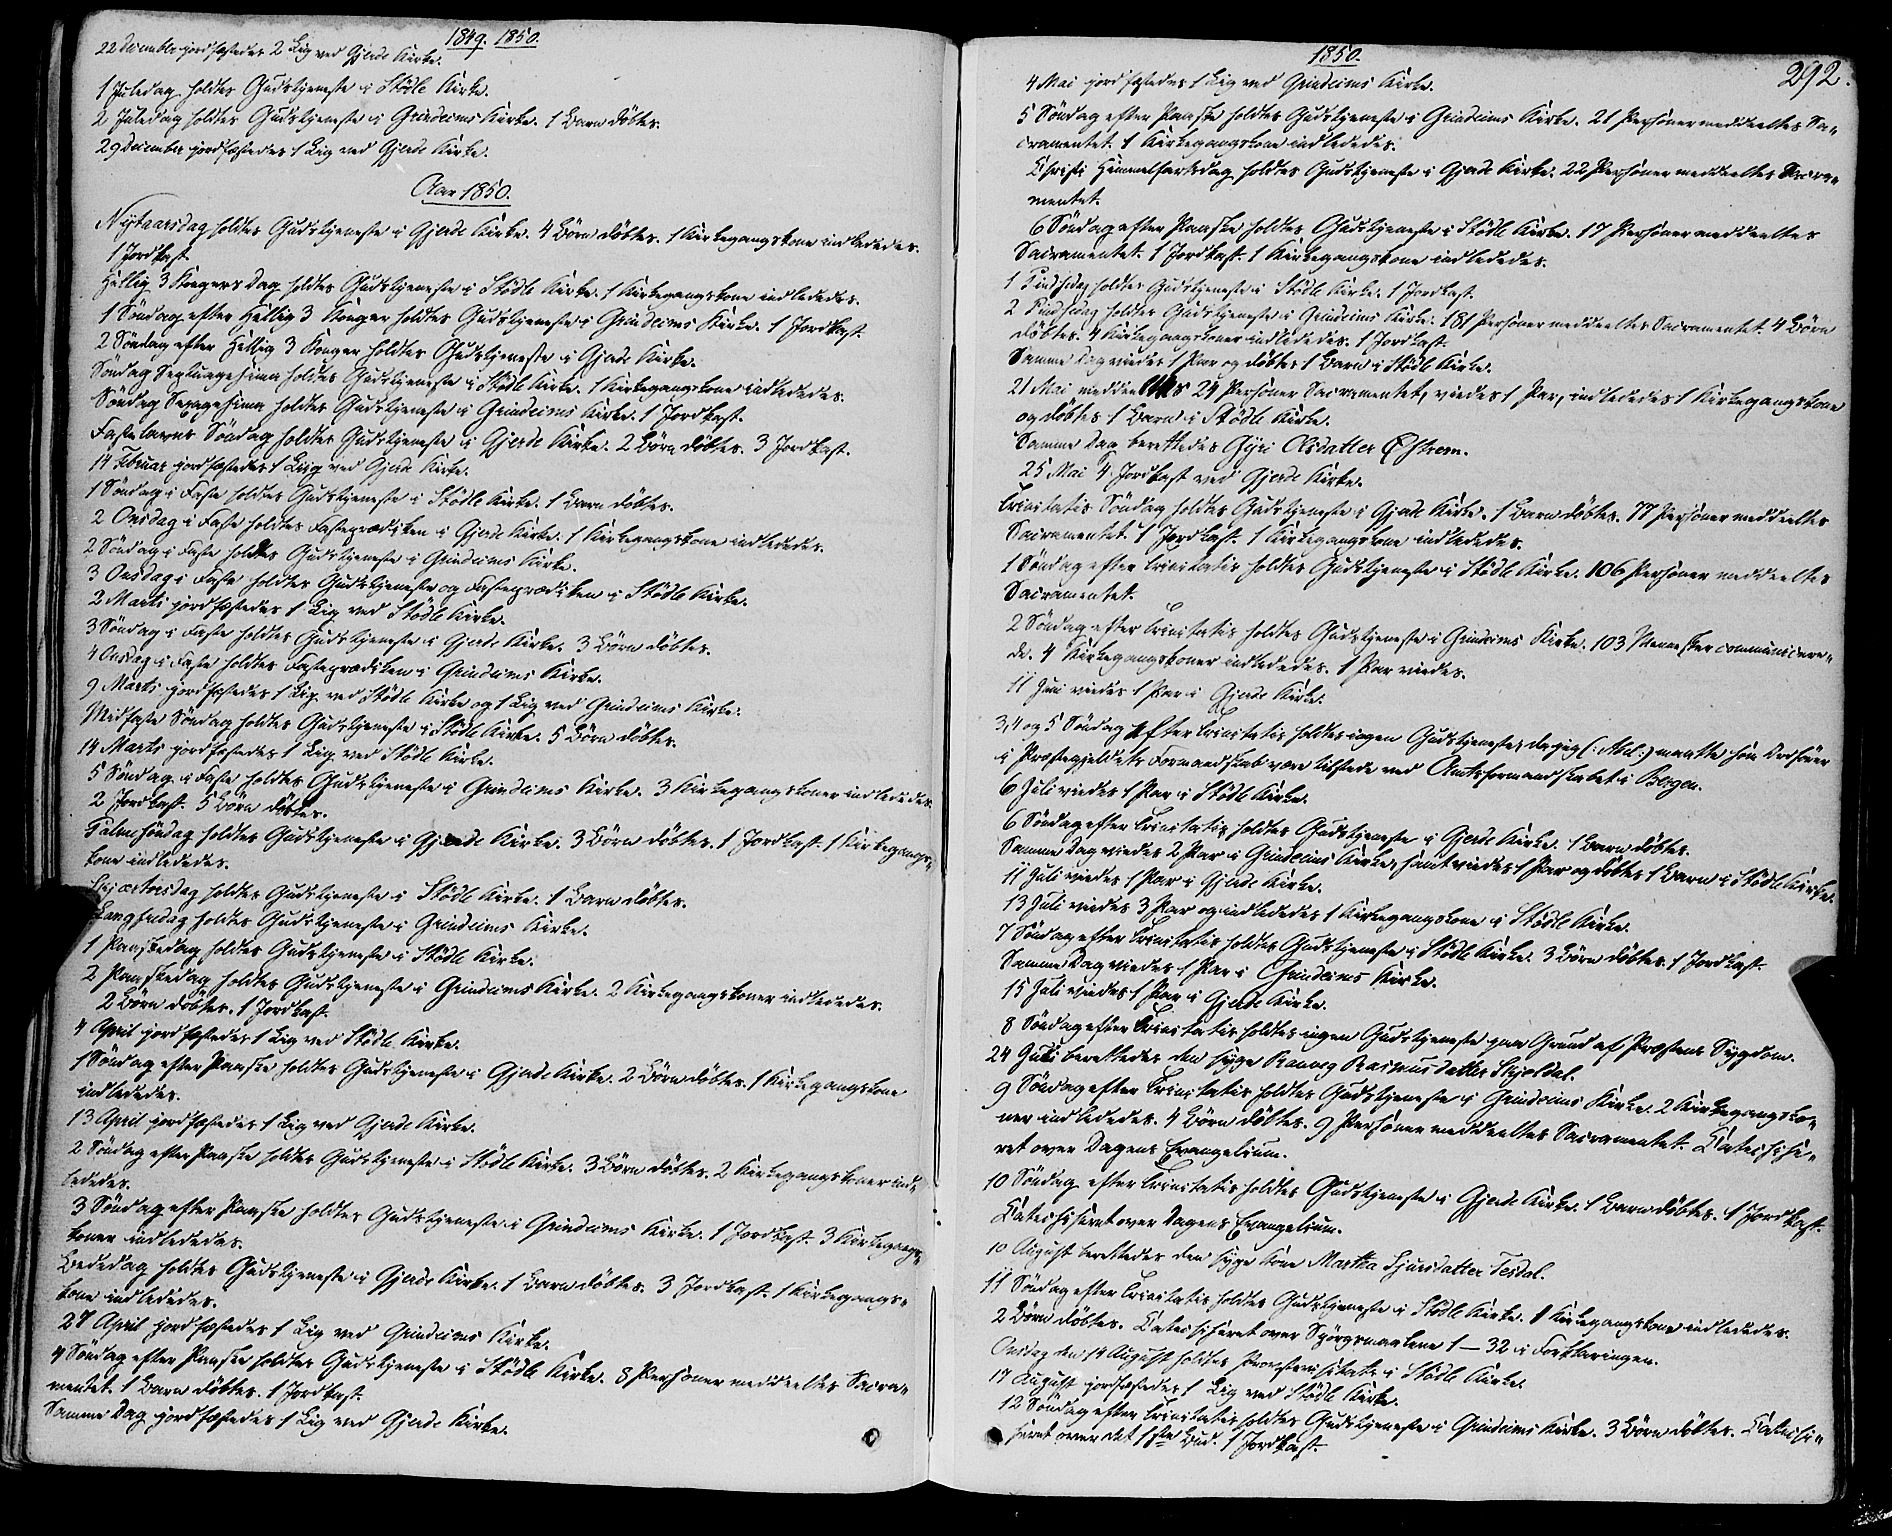 1849. 1850.
22 December jordfæstedes 2 Lig ved Gjerde Kirke.
1 Juledag holdtes Gudstjeneste i Stødle Kirke.
2 Juledag holdtes Gudstjeneste i Grindeims Kirke. 1 Barn døbtes.
29 December jordfæstedes 1 Lig ved Gjerde Kirke.
Aar 1850.
Nytaarsdag holdtes Gudstjeneste i Gjerde Kirke. 4 Børn døbtes. 1 Kirkegangskone indlededes.
1 Jordkast.
Hellig 3 Kongers Dag holdtes Gudstjeneste i Stødle Kirke. 1 Kirkegangskone indlededes.
1 Søndag efter Hellig 3 Konger holdtes Gudstjeneste i Grindeims Kirke. 1 Jordkast.
2 Søndag efter Hellig 3 Konger holdtes Gudstjeneste i Gjerde Kirke.
Søndag Septuagesima holdtes Gudstjeneste i Stødle Kirke. 1 Kirkegangskone indlededes.
Søndag Sexagesima holdtes Gudstjeneste i Grindeims Kirke. 1 Jordkast.
Fastelavns Søndag holdtes Gudstjeneste i Gjerde Kirke. 2 Børn døbtes. 3 Jordkast.
14 Februar jordfæstedes 1 Liig ved Gjerde Kirke.
1 Søndag i Faste holdtes Gudstjeneste i Stødle Kirke. 1 Barn døbtes.
2 Onsdag i Faste holdtes Fasteprædiken i Gjerde Kirke. 1 Kirkegangskone indlededes.
2 Søndag i Faste holdtes Gudstjeneste i Grindeims Kirke.
3 Onsdag i Faste holdtes Gudstjeneste og Fasteprædiken i Stødle Kirke.
2 Marts jordfæstedes 1 Lig ved Stødle Kirke.
3 Søndag i Faste holdtes Gudstjeneste i Gjerde Kirke. 3 Børn døbtes.
4 Onsdag i Faste holdtes Fasteprædiken i Grindeims Kirke.
9 Marts jordfæstedes 1 Lig ved Stødle Kirke og 1 Lig ved Grindeims Kirke.
Midfaste Søndag holdtes Gudstjeneste i Stødle Kirke. 5 Børn døbtes.
14 Marts jordfæstedes 1 Lig ved Stødle Kirke.
5 Søndag i Faste holdtes Gudstjeneste i Grindeims Kirke. 3 Kirkegangskoner indlededes.
2 Jordkast. 5 Børn døbtes.
Palmesøndag holdtes Gudstjeneste i Gjerde Kirke. 3 Børn døbtes. 1 Jordkast. 1 Kirkegangs-
kone indlededes.
Skjærtorsdag holdtes Gudstjeneste i Stødle Kirke. 1 Barn døbtes.
Langfredag holdtes Gudstjeneste i Grindeims Kirke.
1 Paaskedag holdtes Gudstjeneste i Stødle Kirke.
2 Paaskedag holdtes Gudstjeneste i Grindeims Kirke. 2 Kirkegangskoner indlededes.
2 Børn døbtes. 1 Jordkast.
4 April jordfæstedes 1 Lig ved Stødle Kirke.
1 Søndag efter Paaske holdtes Gudstjeneste i Gjerde Kirke. 2 Børn døbtes. 1 Kirkegangskone
indlededes.
13 April jordfæstedes 1 Lig ved Gjerde Kirke.
2 Søndag efter Paaske holdtes Gudstjeneste i Stødle Kirke. 3 Børn døbtes. 2 Kirkegangskoner ind-
lededes.
3 Søndag efter Paaske holdtes Gudstjeneste i Grindeims Kirke. 1 Jordkast. 3 Kirkegangs-
koner indlededes.
Bededag holdtes Gudstjeneste i Gjerde Kirke. 1 Barn døbtes. 3 Jordkast. 1 Kirkegangs-
kone indlededes.
27 April jordfæstedes 1 Lig ved Grindeims Kirke.
4 Søndag efter Paaske holdtes Gudstjeneste i Stødle Kirke. 8 Personer meddeeltes Sacra-
mentet. 1 Barn døbtes. 1 Jordkast.
Samme Dag jordfæstedes 1 Lig ved Gjerde Kirke.
1850.
292.
4 Mai jordfæstedes 1 Lig ved Grindeims Kirke.
5 Søndag efter Paaske holdtes Gudstjeneste i Grindeims Kirke. 21 Personer meddeeltes Sa-
cramentet. 1 Kirkegangskone indlededes.
Christi Himmelfartsdag holdtes Gudstjeneste i Gjerde Kirke. 22 Personer meddeeltes Sacra-
mentet.
6 Søndag efter Paaske holdtes Gudstjeneste i Stødle Kirke. 17 Personer meddeeltes
Sacramentet. 1 Jordkast. 1 Kirkegangskone indlededes.
1 Pindsedag holdtes Gudstjeneste i Stødle Kirke. 1 Jordkast.
2 Pindsedag holdtes Gudstjeneste i Grindeims Kirke. 181 Personer meddeeltes Sacramentet. 4 Børn
døbtes. 4 Kirkegangskoner indlededes. 1 Jordkast.
Samme Dag viedes 1 Par og døbtes 1 Barn i Stødle Kirke.
21 Mai meddeeltes 24 Personer Sacramentet, viedes 1 Par, indlededes 1 Kirkegangskone
og døbtes 1 Barn i Stødle Kirke.
Samme Dag berettedes Gyri Olsdatter Østrem.
25 Mai 4 Jordkast ved Gjerde Kirke.
Trinitatis Søndag holdtes Gudstjeneste i Gjerde Kirke. 1 Barn døbtes. 77 Personer meddeeltes
Sacramentet. 1 Jordkast. 1 Kirkegangskone indlededes.
1 Søndag efter Trinitatis holdtes Gudstjeneste i Stødle Kirke. 106 Personer meddeeltes
Sacramentet.
2 Søndag efter Trinitatis holdtes Gudstjeneste i Grindeims Kirke. 103 Mennesker communicere-
de. 4 Kirkegangskoner indlededes. 1 Par viedes.
11 Juni viedes 1 Par i Gjerde Kirke.
3, 4 og 5 Søndag efter Trinitatis holdtes ingen Gudstjeneste, da jeg maatte som Ordfører
i Præstegjeldets Formandskab være tilstede ved Amtsformandskabet i Bergen.
6 Juli viedes 1 Par i Stødle Kirke.
6 Søndag efter Trinitatis holdtes Gudstjeneste i Gjerde Kirke. 1 Barn døbtes.
Samme Dag viedes 2 Par i Grindeims Kirke, samt viedes 1 Par og døbtes 1 Barn i Stødle Kirke.
11 Juli viedes 1 Par i Gjerde Kirke.
13 Juli viedes 3 Par og indlededes 1 Kirkegangskone i Stødle Kirke.
7 Søndag efter Trinitatis holdtes Gudstjeneste i Stødle Kirke. 3 Børn døbtes. 1 Jordkast.
Samme Dag viedes 1 Par i Grindeims Kirke.
15 Juli viedes 1 Par i Gjerde Kirke.
8 Søndag efter Trinitatis holdtes ingen Gudstjeneste paa Grund af Præstens Sygdom.
24 Juli berettedes den syge Ranveg Rasmusdatter Skjoldal.
9 Søndag efter Trinitatis holdtes Gudstjeneste i Grindeims Kirke. 2 Kirkegangsko-
ner indlededes. 4 Børn døbtes. 9 Personer meddeeltes Sacramentet. Catechise-
ret over Dagens Evangelium.
10 Søndag efter Trinitatis holdtes Gudstjeneste i Gjerde Kirke. 1 Barn døbtes. 1 Jordkast.
Catechiseret over Dagens Evangelium.
10 August berettedes den syge Kone Martha Sjursdatter Tesdal.
11 Søndag efter Trinitatis holdtes Gudstjeneste i Stødle Kirke. 1 Kirkegangskone indlededes.
2 Børn døbtes. Catechiseret over Spörgsmaalene 1 — 32 i Forklaringen.
Onsdag den 14 August holdtes Provstevisitats i Stødle Kirke.
17 August jordfæstedes 1 Lig ved Stødle Kirke.
12 Søndag efter Trinitatis holdtes Gudstjeneste i Grindeims Kirke. 3 Børn døbtes. Catechi-
seret over det 1ste Bud. 1 Jordkast.